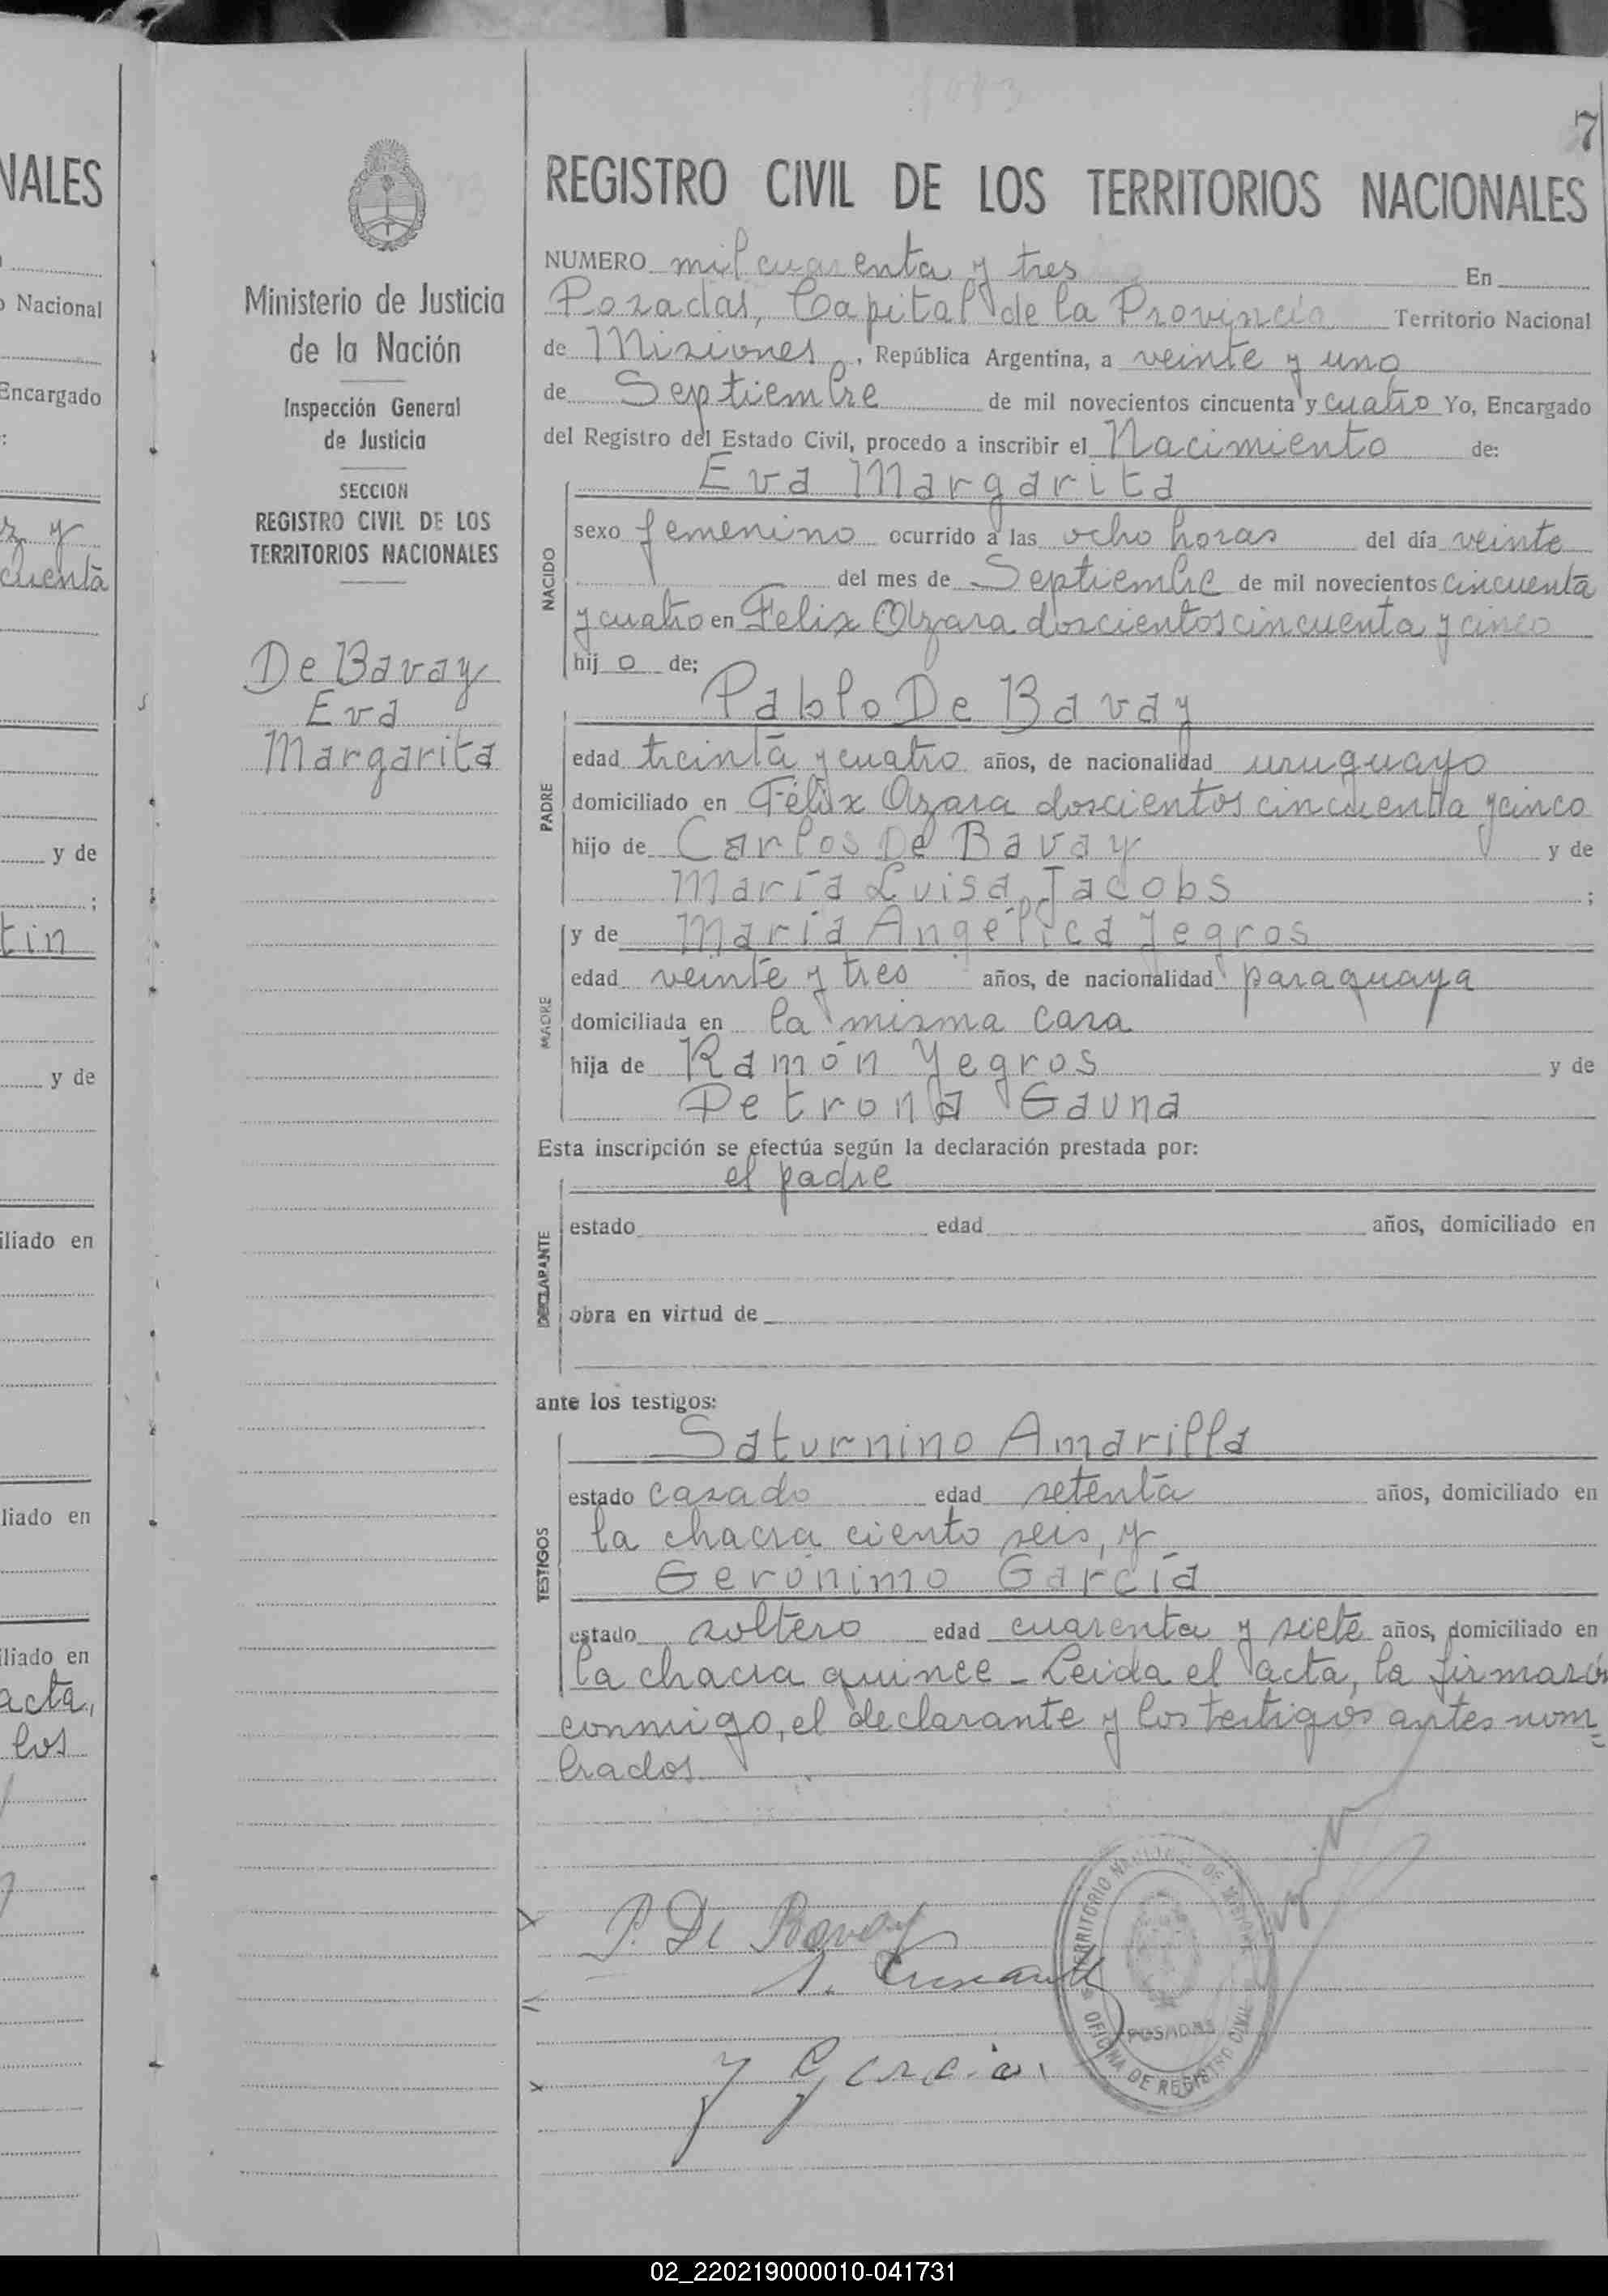 1043
7
NALES
Nacional
Encargado
:
z y
cuenta
y de
;
tin
y de
iliado en
liado en
iliado en
acta,
los
Ministerio de Justicia
de la Nación
Inspección General
de Justicia
SECCION
REGISTRO CIVIL DE LOS
TERRITORIOS NACIONALES
De Bavay
Eva
Margarita
REGISTRO CIVIL DE LOS TERRITORIOS NACIONALES
NUMERO mil cuarenta y tres En
Posadas, Capital de la Provincia Territorio Nacional
de Misiones, República Argentina, a veinte y uno
de Septiembre de mil novecientos cincuenta y cuatro Yo, Encargado
del Registro del Estado Civil, procedo a inscribir el Nacimiento de:
Eva Margarita
NACIDO
sexo femenino ocurrido a las ocho horas del día veinte
del mes de Septiembre de mil novecientos cincuenta
y cuatro en Felix Azara doscientos cincuenta y cinco
hij o de;
Pablo De Bavay
PADRE
edad treinta y cuatro años, de nacionalidad uruguayo
domiciliado en Félix Azara doscientos cincuenta y cinco
hijo de Carlos De Bavay y de
María Luisa Jacobs ;
y de María Angélica Yegros
MADRE
edad veinte y tres años, de nacionalidad paraguaya
domiciliada en la misma casa
hija de Ramón Yegros y de
Petrona Gauna
Esta inscripción se efectúa según la declaración prestada por:
el padre
DECLARANTE
estado edad años, domiciliado en
obra en virtud de
ante los testigos:
Saturnino Amarilla
TESTIGOS
estado casado edad setenta años, domiciliado en
la chacra ciento seis, y
Gerónimo García
estado soltero edad cuarenta y siete años, domiciliado en
la chacra quince - Leida el acta, la firmarón
conmigo, el declarante y los testigos antes nom=
brados.
P. De Bavay
y Garcia
TERRITORIO NACIONAL DE MISIONES
POSADAS
OFICINA DE REGISTRO CIVIL
02_220219000010-041731